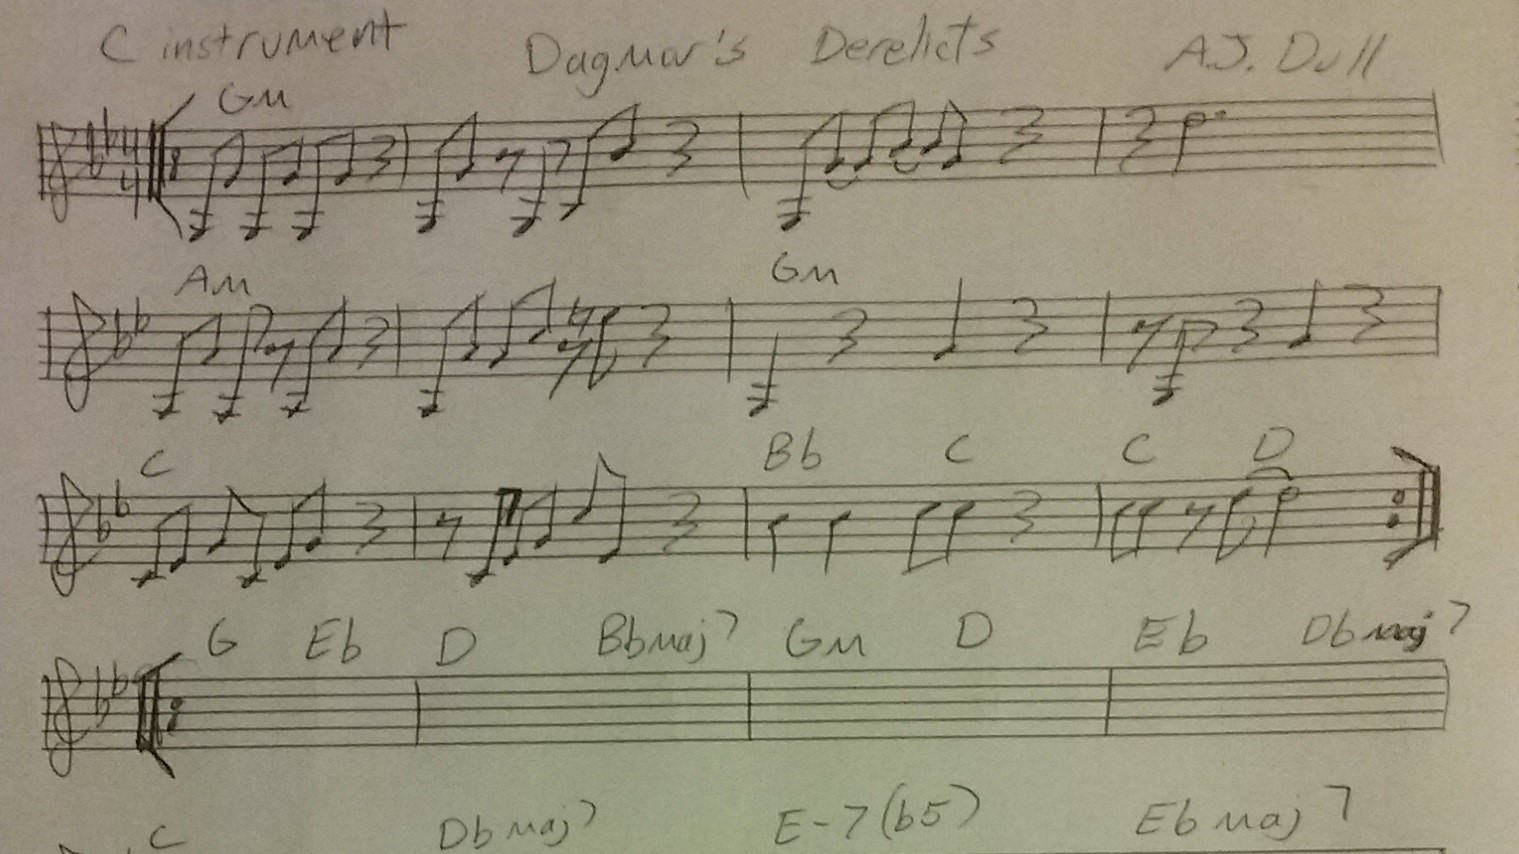 C instrument Dagmar's Derelicts A.J. Dull
Gm
4
4
Am Gm
C Bb C C D
G Eb D Bbmaj7 Gm D Eb Dbmaj7
C Dbmaj7 E-7(b5) Ebmaj7